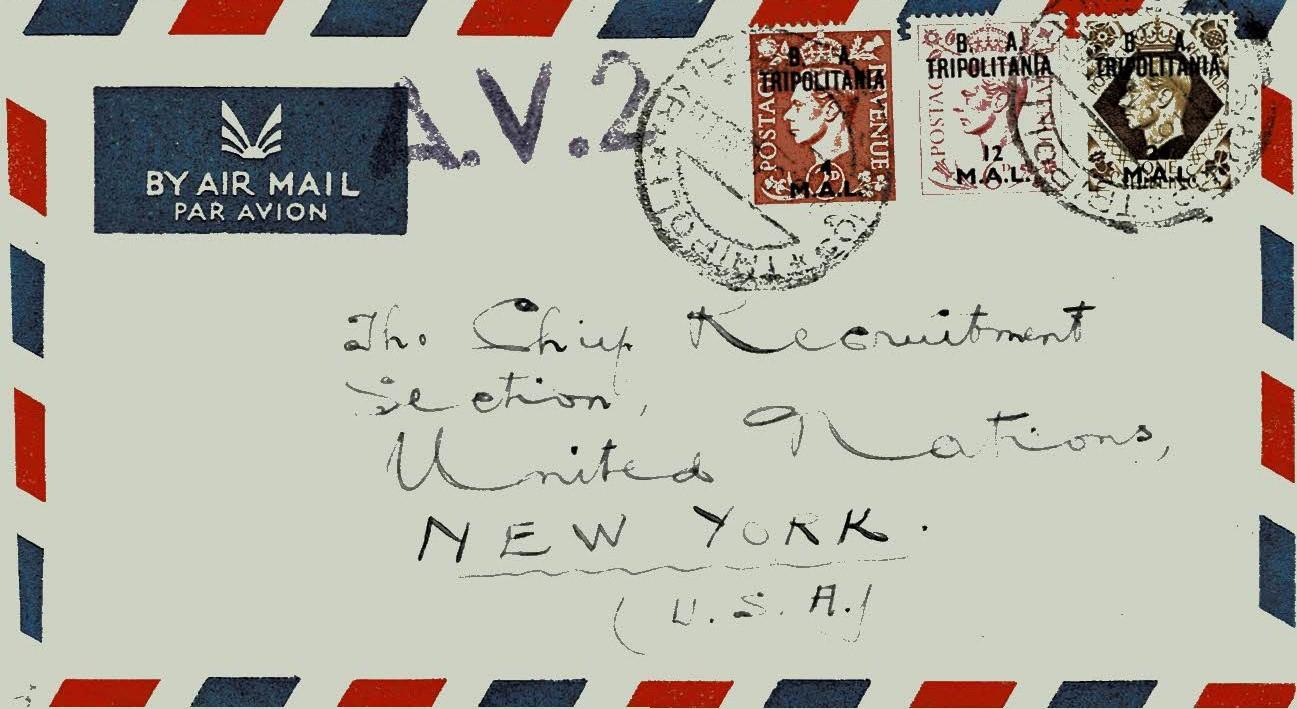 A.V.2
BY AIR MAIL
PAR AVION
B. A.
TRIPOLITANIA
POSTAGE REVENUE
4
M.A.L.
B. A.
TRIPOLITANIA
POSTAGE REVENUE
12
M.A.L.
B. A.
TRIPOLITANIA
ONE
M.A.L.
TRIPOLI
The Chief Recruitment
Section,
United Nations,
NEW YORK.
(U.S.A.)